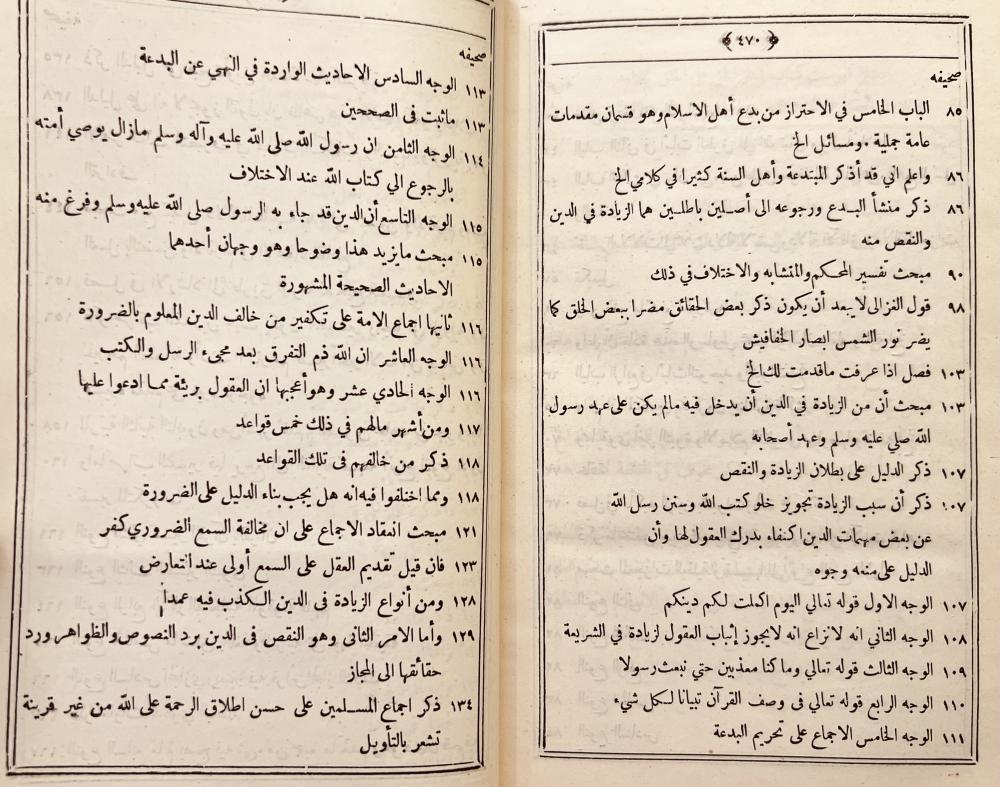 ﴿ ٤٧٠ ﴾
صحيفه
٨٥ الباب الخامس في الاحتراز من بدع أهل الاسلام وهو قسمان مقدمات
عامة جملية ٠ ومسائل الخ
٨٦ واعلم اني قد أذكر المبتدعة وأهل السنة كثيرا في كلامي الخ
٨٦ ذكر منشأ البدع ورجوعه الى أصلين باطلين هما الزيادة في الدين
والنقص منه
٩٠ مبحث تفسير المحكم والمتشابه والاختلاف في ذلك
٩٨ قول الغزالى لا يبعد أن يكون ذكر بعض الحقائق مضرا ببعض الخلق كما
يضر نور الشمس ابصار الخفافيش
١٠٣ فصل اذا عرفت ماقدمت لك الخ
١٠٣ مبحث أن من الزيادة في الدين أن يدخل فيه مالم يكن على عهد رسول
الله صلي عليه وسلم وعهد أصحابه
١٠٧ ذكر الدليل على بطلان الزيادة والنقص
١٠٧ ذكر أن سبب الزيادة تجويز خلو كتب الله وسنن رسل الله
عن بعض مهمات الدين اكتفاء بدرك العقول لها وأن
الدليل على منعه وجوه
١٠٧ الوجه الاول قوله تعالي اليوم اكملت لكم دينكم
١٠٨ الوجه الثاني انه لانزاع انه لايجوز إثباب العقول لزيادة في الشريعة
١٠٩ الوجه الثالث قوله تعالي وما كنا معذبين حتي نبعث رسولا
١١٠ الوجه الرابع قوله تعالي في وصف القرآن تبيانا لكل شيء
١١١ الوجه الخامس الاجماع على تحريم البدعة
صحيفه
١١٣ الوجه السادس الاحاديث الواردة في النهي عن البدعة
١١٣ ماثبت فى الصححين
١١٤ الوجه الثامن ان رسول الله صلى الله عليه وآله وسلم مازال يوصي أمته
بالرجوع الي كتاب الله عند الاختلاف
١١٥ الوجه التاسع أن الدين قد جاء به الرسول صلى الله عليه وسلم وفرغ منه
١١٥ مبحث مايزيد هذا وضوحا وهو وجهان أحدهما
الاحاديث الصحيحة المشهورة
١١٦ ثانيها اجماع الامة على تكفير من خالف الدين المعلوم بالضرورة
١١٦ الوجه العاشر ان الله ذم التفرق بعد مجىء الرسل والكتب
١١٦ الوجه الحادي عشر وهو أعجبها ان العقول بريئة مما ادعوا عليها
١١٧ ومن أشهر مالهم في ذلك خمس قواعد
١١٨ ذكر من خالفهم فى تلك القواعد
١١٨ ومما اختلفوا فيه انه هل يجب بناء الدليل على الضرورة
١٢١ مبحث انعقاد الاجماع على ان مخالفة السمع الضروري كفر
١٢٣ فان قيل تقديم العقل على السمع أولى عند التعارض
١٢٨ ومن أنواع الزيادة فى الدين الكذب فيه عمداً
١٢٩ وأما الامر الثانى وهو النقص فى الدين برد النصوص والظواهر ورد
حقائقها الى المجاز
١٣٤ ذكر اجماع المسلمين على حسن اطلاق الرحمة على الله من غير قرينة
تشعر بالتأويل